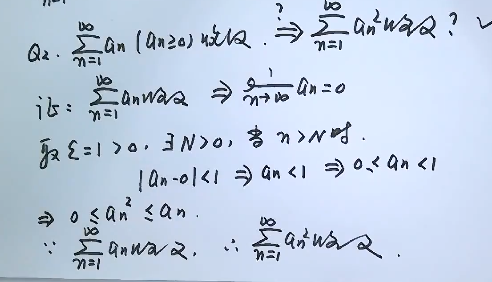 Q2. ∑_{n=1}^{∞} an (an≥0) 收敛. ⇒? ∑_{n=1}^{∞} an² 收敛? ✓
证: ∑_{n=1}^{∞} an收敛 ⇒ lim_{n→∞} an=0
取 ε=1>0, ∃N>0, 当 n>N时.
|an-0|<1 ⇒ an<1 ⇒ 0≤an<1
⇒ 0≤an²≤an.
∵ ∑_{n=1}^{∞} an收敛. ∴ ∑_{n=1}^{∞} an²收敛.